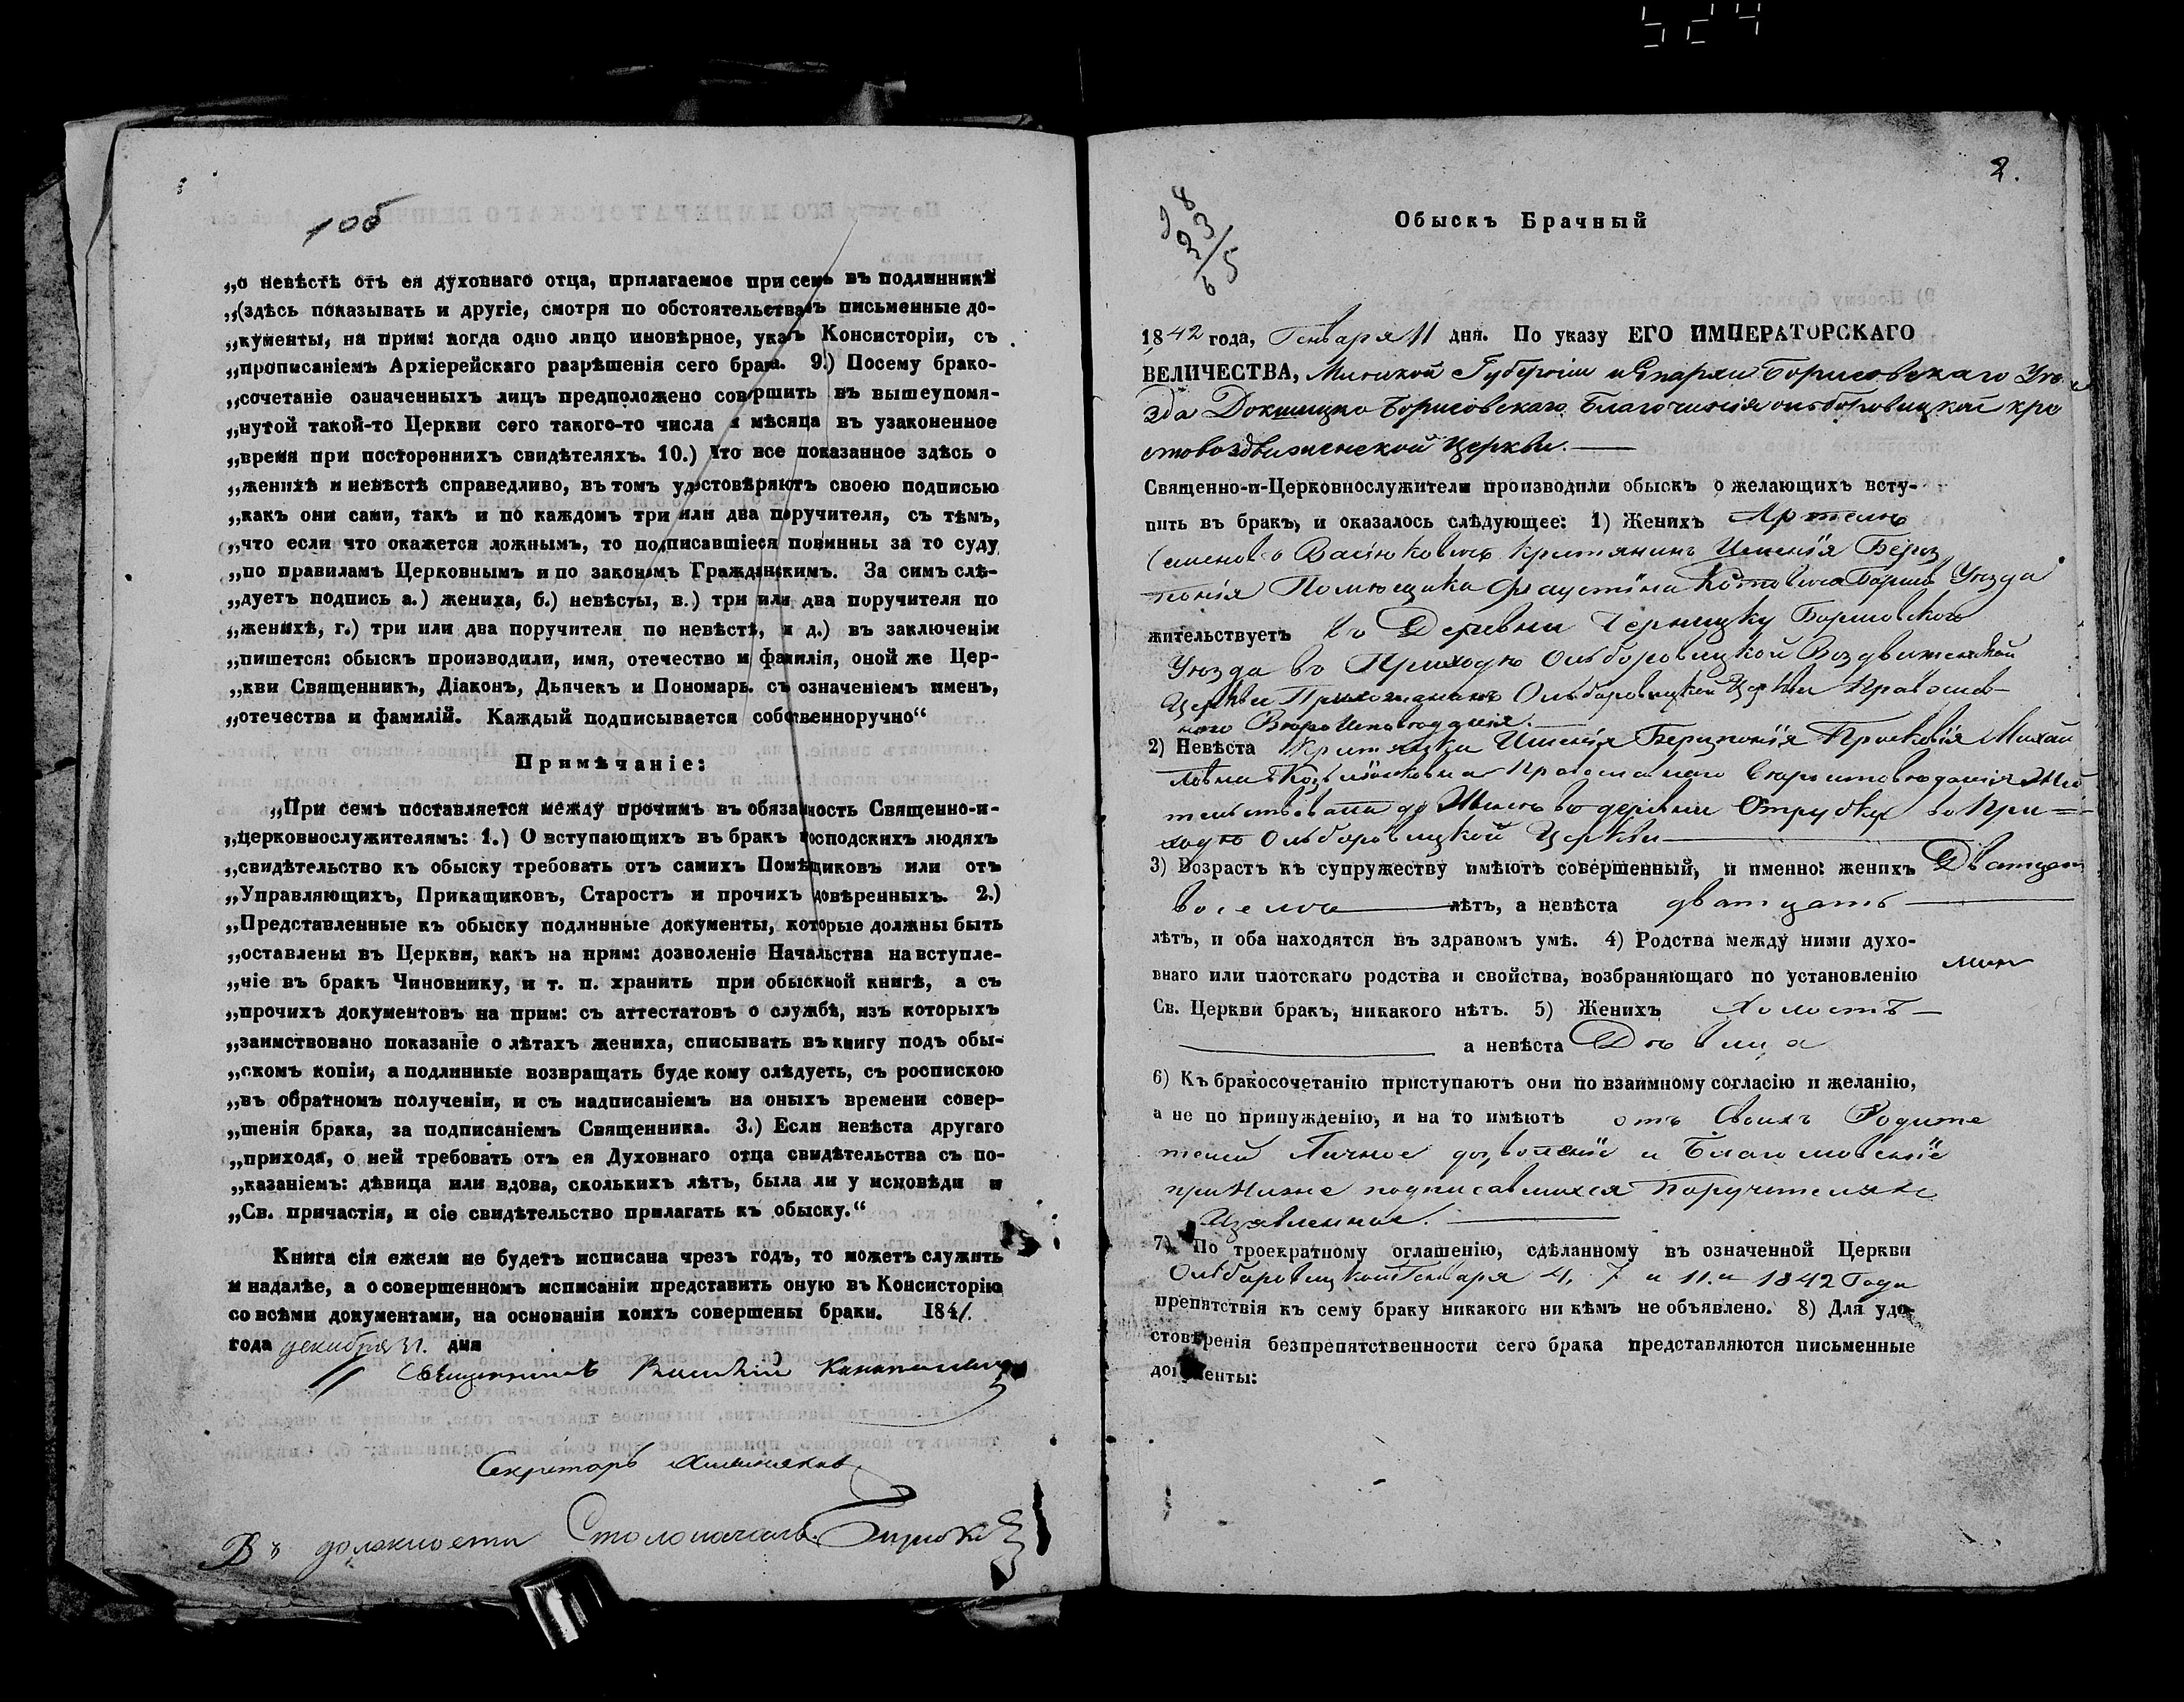 524
1об
„о невѣстѣ отъ ея духовнаго отца, прилагаемое при семъ въ подлинникѣ
„(здѣсь показывать и другіе, смотря по обстоятельствамъ письменные до-
„кументы, на прим: когда одно лицо иновѣрное, указъ Консисторіи, съ
„прописаніемъ Архіерейскаго разрѣшенія сего брака. 9.) Посему брако-
„сочетаніе означенныхъ лицъ предположено совершить въ вышеупомя-
„нутой такой-то Церкви сего такого-то числа и мѣсяца въ узаконенное
„время при постороннихъ свидѣтеляхъ. 10.) Что все показанное здѣсь о
„женихѣ и невѣстѣ справедливо, въ томъ удостовѣряютъ своею подписью
„какъ они сами, такъ и по каждомъ три или два поручителя, съ тѣмъ,
„что если что окажется ложнымъ, то подписавшіеся повинны за то суду
„по правиламъ Церковнымъ и по законамъ Гражданскимъ. За симъ слѣ-
„дуетъ подпись а.) жениха, б.) невѣсты, в.) три или два поручителя по
„женихѣ, г.) три или два поручителя по невѣстѣ, и д.) въ заключеніи
„пишется: обыскъ производили, имя, отечество и фамилія, оной же Цер-
„кви Священникъ, Діаконъ, Дьячекъ и Пономарь. съ означеніемъ именъ,
„отечества и фамилій. Каждый подписывается собственноручно“
Примѣчаніе:
„При семъ поставляется между прочимъ въ обязанность Священно-и-
„церковнослужителямъ: 1.) О вступающихъ въ бракъ господскихъ людяхъ
„свидѣтельство къ обыску требовать отъ самихъ Помѣщиковъ или отъ
„Управляющихъ, Прикащиковъ, Старостъ и прочихъ довѣренныхъ. 2.)
„Представленные къ обыску подлинные документы, которые должны быть
„оставлены въ Церкви, какъ на прим: дозволеніе Начальства на вступле-
„ніе въ бракъ Чиновнику, и т. п. хранить при обыскной книгѣ, а съ
„прочихъ документовъ на прим: съ аттестатовъ о службѣ, изъ которыхъ
„заимствовано показаніе о лѣтахъ жениха, списывать въ книгу подъ обы-
„скомъ копіи, а подлинные возвращать буде кому слѣдуетъ, съ роспискою
„въ обратномъ полученіи, и съ надписаніемъ на оныхъ времени совер-
„шенія брака, за подписаніемъ Священника. 3.) Если невѣста другаго
„прихода, о ней требовать отъ ея Духовнаго отца свидѣтельства съ по-
„казаніемъ: дѣвица или вдова, сколькихъ лѣтъ, была ли у исповѣди и
„Св. причастія, и сіе свидѣтельство прилагать къ обыску.“
Книга сія ежели не будетъ исписана чрезъ годъ, то можетъ служить
и надалѣе, а о совершенномъ исписаніи представить оную въ Консисторію
со всѣми документами, на основаніи коихъ совершены браки. 1841.
года декабря 31. дня
Священникъ
Секретарь
Въ должности Столоначаль.
2.
Обыскъ Брачный
1842 года, Генваря 11 дня. По указу ЕГО ИМПЕРАТОРСКАГО
ВЕЛИЧЕСТВА, Минской Губерніи и Епархіи Борисовскаго Уѣ
зда Докшицко Борисовскаго Благочинія Ольборовицкой кре
стовоздвиженской Церкви.
Священно-и-Церковнослужители производили обыскъ о желающихъ всту-
пить въ бракъ, и оказалось слѣдующее: 1) Женихъ
Семеновъ Васюковичъ Имѣнія
Помѣщика Фаустина Уѣзда
жительствуетъ въ Деревни Борисовского
Уѣзда въ Приходѣ Ольборовицкой Воздвиженской
Церкви Ольборовицкой Церкви Православ-
ного Вѣроисповѣданія.
2) Невѣста Имѣнія Михай
ловна Православнаго Жи
въ деревни Отрубку въ При=
ходѣ Ольборовицкой Церкви
3) Возрастъ къ супружеству имѣютъ совершенный, и именно: женихъ Дватцет
восемъ лѣтъ, а невѣста дватцать
лѣтъ, и оба находятся въ здравомъ умѣ. 4) Родства между ними духо-
внаго или плотскаго родства и свойства, возбраняющаго по установленію
Св. Церкви бракъ, никакого нѣтъ. 5) Женихъ Холостъ
а невѣста Дѣвица
6) Къ бракосочетанію приступаютъ они по взаимному согласію и желанію,
а не по принуждению, и на то имѣютъ отъ Своихъ Родите
телей Личное дозволеніе и Благословеніе
при Ниже подписавшихся Поручителяхъ
Изявленное.
7) По троекратному оглашенію, сдѣланному въ означенной Церкви
Ольборовицкой Генваря 4, 7 и 11. 1842 Года
препятствія къ сему браку никакого ни кѣмъ не объявлено. 8) Для удо-
стовѣренія безпрепятственности сего брака представляются письменные
документы: